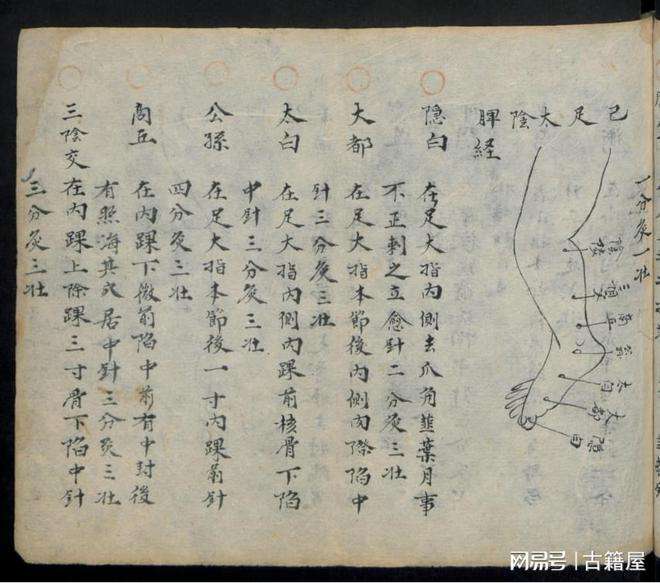 己足太陰
脾経
一分灸一壮
隠白
在足大指内側去爪角韮葉月事
不正刺之立愈針二分灸三壮
大都
在足大指本節後内側肉際陥中
針三分灸三壮
太白
在足大指内側内踝前核骨下陥
中針三分灸三壮
公孫
在足大指本節後一寸内踝前針
四分灸三壮
商丘
在内踝下微前陥中前有中封後
有照海其穴居中針三分灸三壮
三陰交
在内踝上除踝三寸骨下陥中針
三分灸三壮
太白
大都
隠白
网易号 | 古籍屋